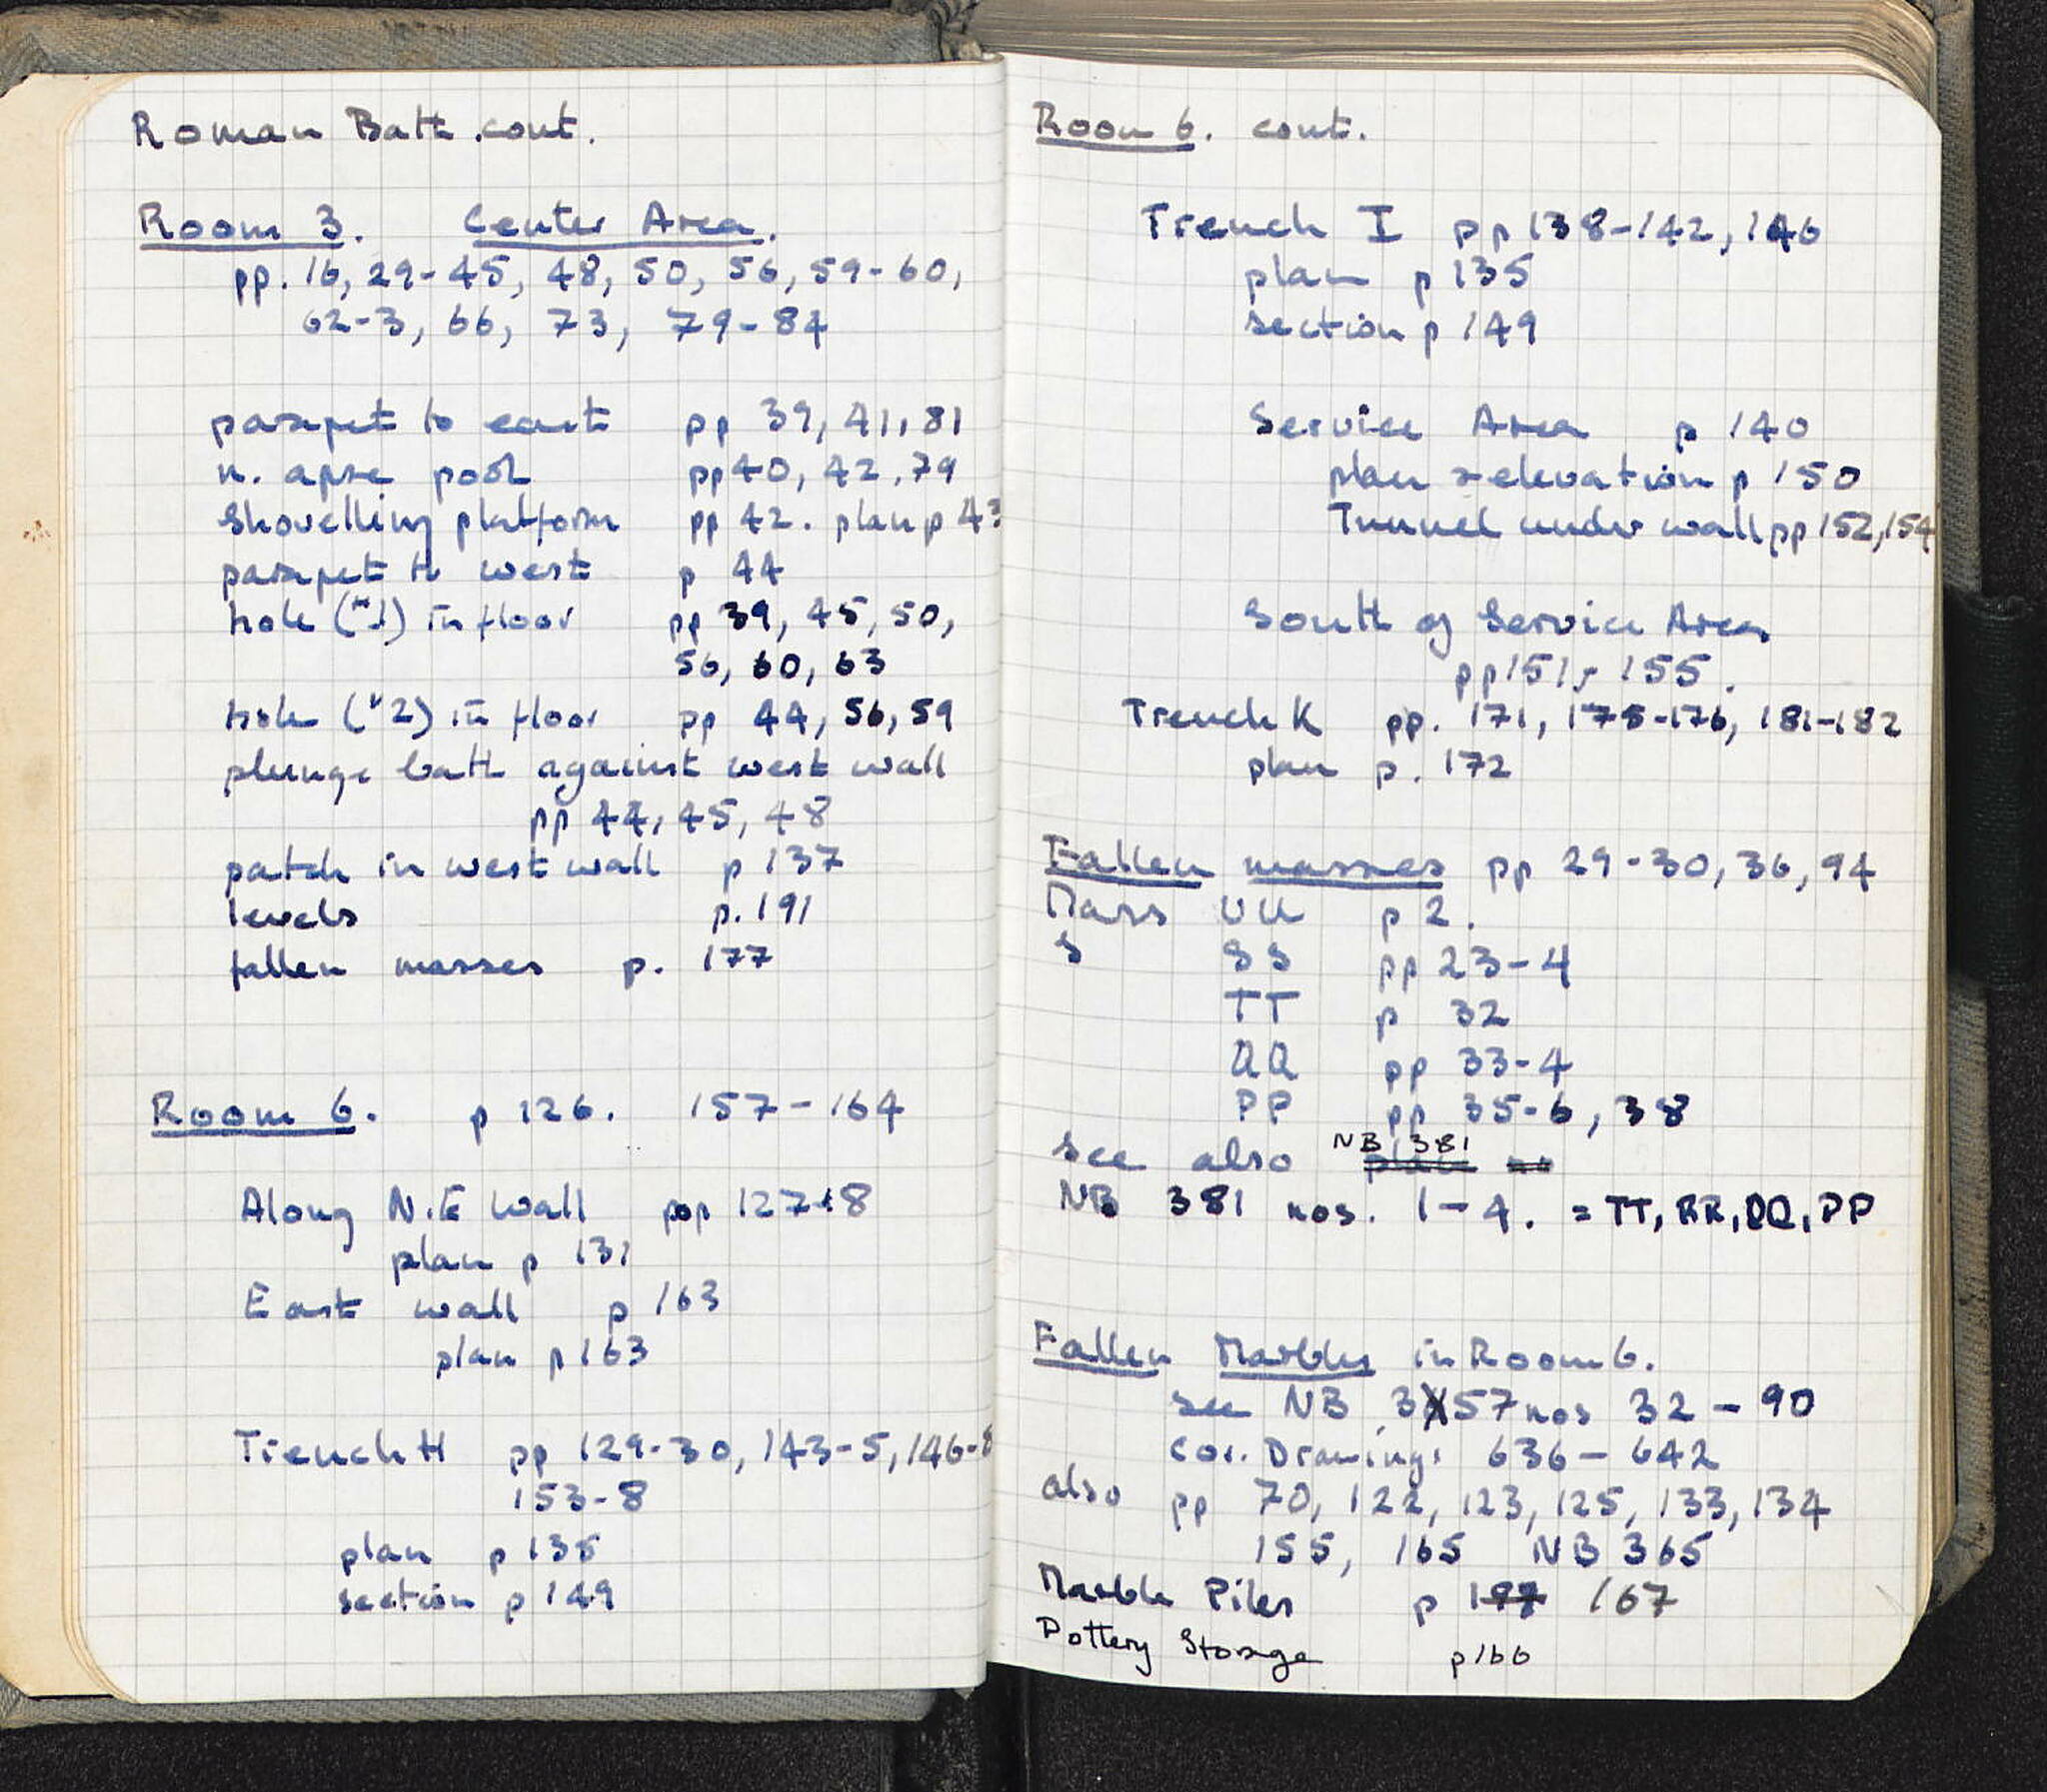 Roman Bath cont.
Room 3. Center Area.
pp. 16, 29-45, 48, 50, 56, 59-60,
62-3, 66, 73, 79-84
parapet to east pp 39, 41, 81
n. apse pool pp 40, 42, 79
Shovelling platform pp 42. plan p 43
parapet to west p 44
hole (#1) in floor pp 39, 45, 50,
56, 60, 63
hole (#2) in floor pp 44, 56, 59
plunge bath against west wall
pp 44, 45, 48
patch in west wall p 137
levels p. 191
fallen masses p. 177
Room 6. p 126. 157-164
Along N.E wall pp 127-8
plan p 131
East wall p 163
plan p 163
Trench H pp 129-30, 143-5, 146-8
153-8
plan p 135
section p 149
Room 6. cont.
Trench I pp 138-142, 146
plan p 135
section p 149
Service Area p 140
plan & elevation p 150
Tunnel under wall pp 152, 154
South of Service Area
pp 151, 155.
Trench K pp. 171, 175-176, 181-182
plan p. 172
Fallen masses pp 29-30, 36, 94
Mass UU p 2.
S SS pp 23-4
TT p 32
QQ pp 33-4
PP pp 35-6, 38
NB 381
See also
NB 381 nos. 1-4. = TT, RR, QQ, PP
Fallen Marbles in Room 6.
see NB 357 nos 32-90
Cor. Drawings 636-642
also pp 70, 122, 123, 125, 133, 134
155, 165 NB 365
Marble Piles p 167
Pottery Storage p 166